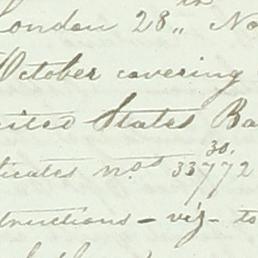 London 28,, No
October covering
nited States Ba
30.
ticates nos 33772
structions - viz - to